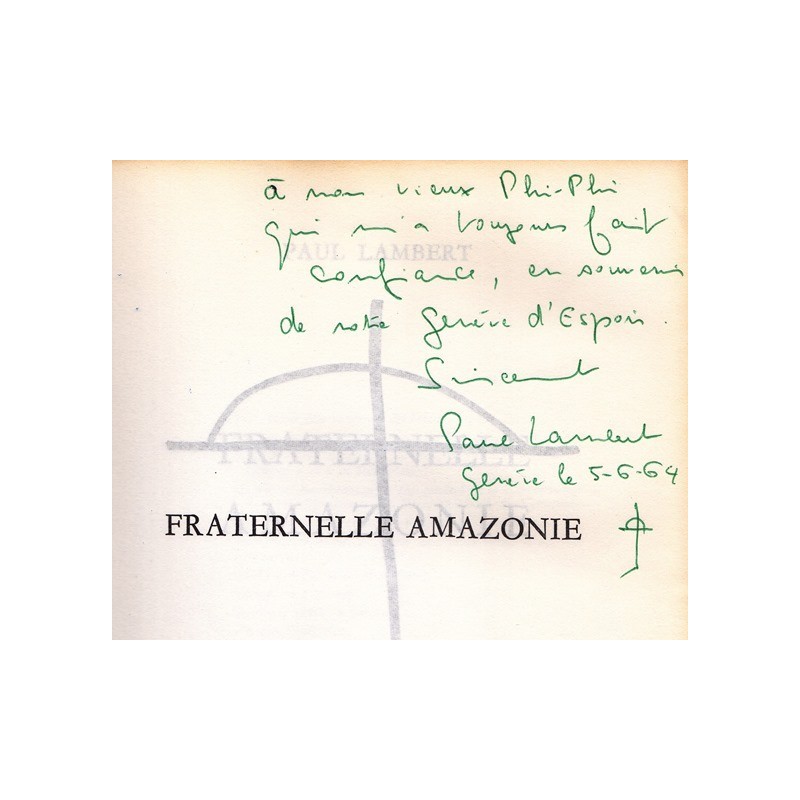 à mon vieux Phi-Phi
qui m'a toujours fait
PAUL LAMBERT
confiance, en souvenir
de notre Genève d'Espoir.
Sincèrement
Paul Lambert
FRATERNELLE
Genève le 5-6-64
AMAZONIE
FRATERNELLE AMAZONIE